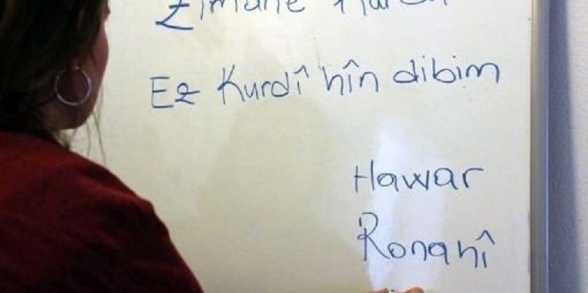 Zimanê
Ez Kurdî hîn dibim
Hawar
Ronahî